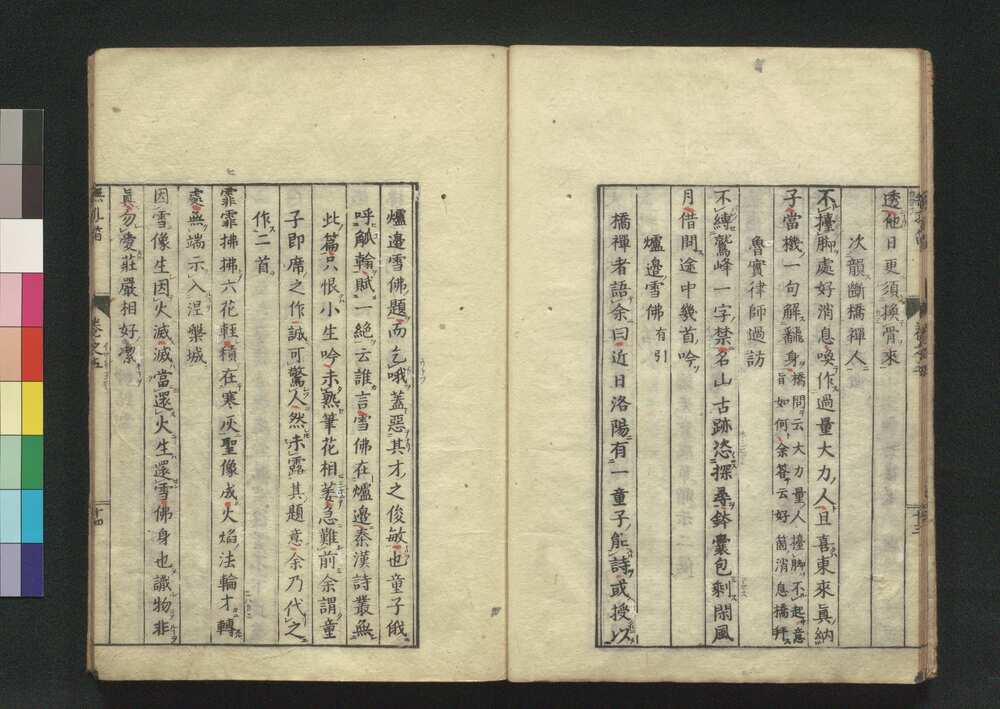 透他日更須換骨來
次韻斷橋禪人
不擡脚處好消息喚作過量大力人且喜東來眞納
子當機一句解翻身橋問云大力量人擡脚不起意
旨如何余答云好箇消息橋拜
魯實律師過訪
不縛鷲峰一字禁名山古跡恣探尋鉢囊包剩閑風
月借問途中幾首吟
爐邊雪佛有引
橋禪者語余曰近日洛陽有一童子能詩或授以
爐邊雪佛題而乞哦蓋惡其才之俊敏也童子俄
呼觚翰賦一絶云誰言雪佛在爐邊秦漢詩叢無
此篇只恨小生吟未熟筆花相萎急難前余謂童
子即席之作誠可驚人然未露其題意余乃代之
作二首
霏霏拂拂六花輕積在寒灰聖像成火焰法輪才轉
處無端示入涅槃城
因雪像生因火滅滅當還火生還雪佛身也識物非
眞勿愛莊嚴相好潔
卷之五
十三
十四